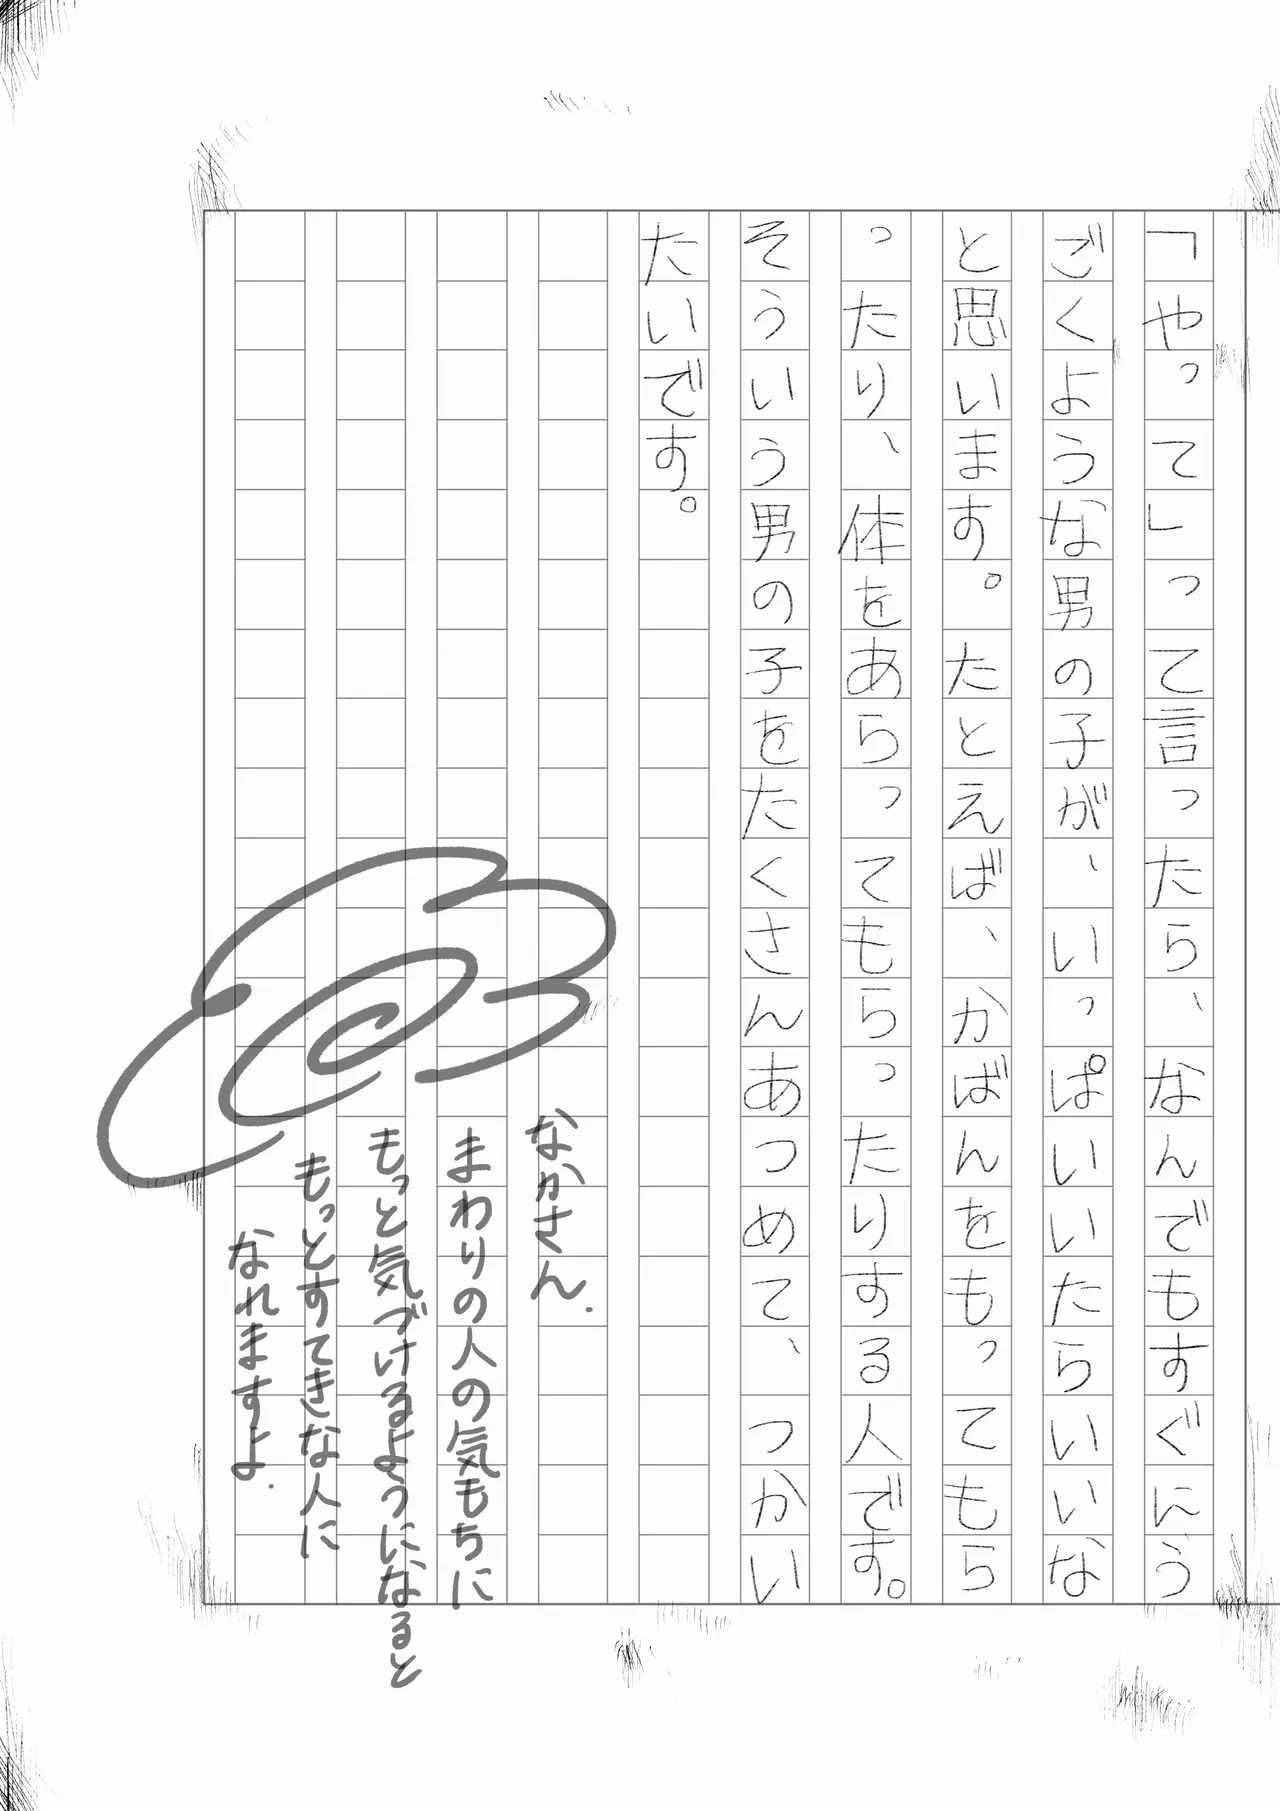 「やって」って言ったら、なんでもすぐにう
ごくような男の子が、いっぱいいたらいいな
と思います。たとえば、かばんをもってもら
ったり、体をあらってもらったりする人です。
そういう男の子をたくさんあつめて、つかい
たいです。
なかさん.
まわりの人の気もちに
もっと気づけるようになると
もっとすてきな人に
なれますよ.